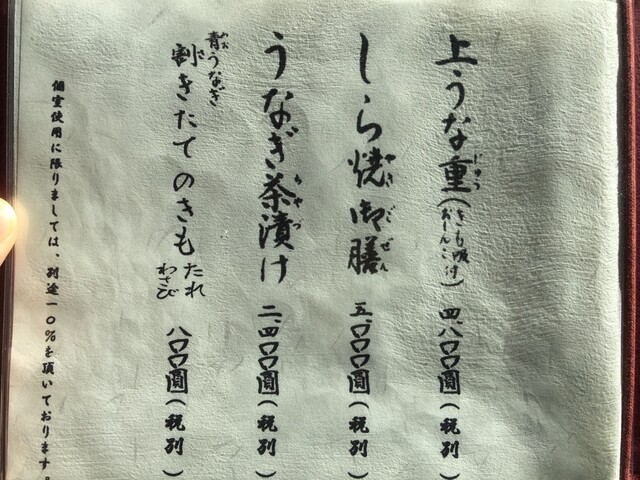 上うな重(きも吸 おしんこ付) 四、八〇〇圓(税別)
じゅう
しら焼御膳 五、〇〇〇圓(税別)
やき ごぜん
うなぎ茶漬け 二、四〇〇圓(税別)
ちゃづ
青うなぎ
あお
割きたてのきも たれ わさび 八〇〇圓(税別)
個室使用に限りましては、別途一〇%を頂いております。